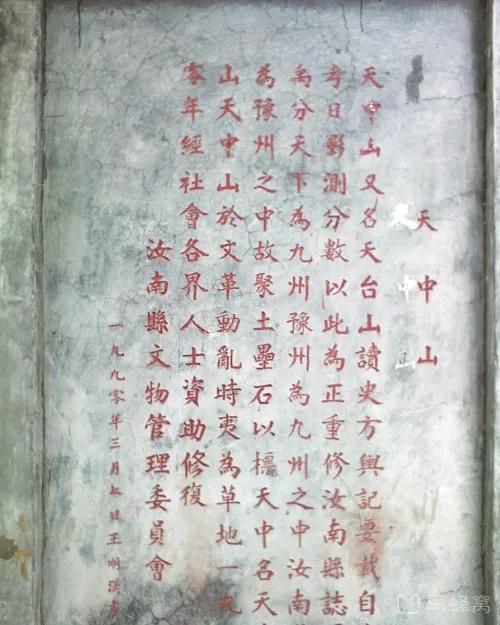 天中山
天中山
天中山又名天台山讀史方輿記要載自
考日影測分數以此為正重修汝南縣誌
禹分天下為九州豫州為九州之中汝南
為豫州之中故聚土壘石以標天中名天
山天中山於文革動亂時夷為草地一九
零年經社會各界人士資助修復
汝南縣文物管理委員會
一九九零年三月日王明書
马蜂窝